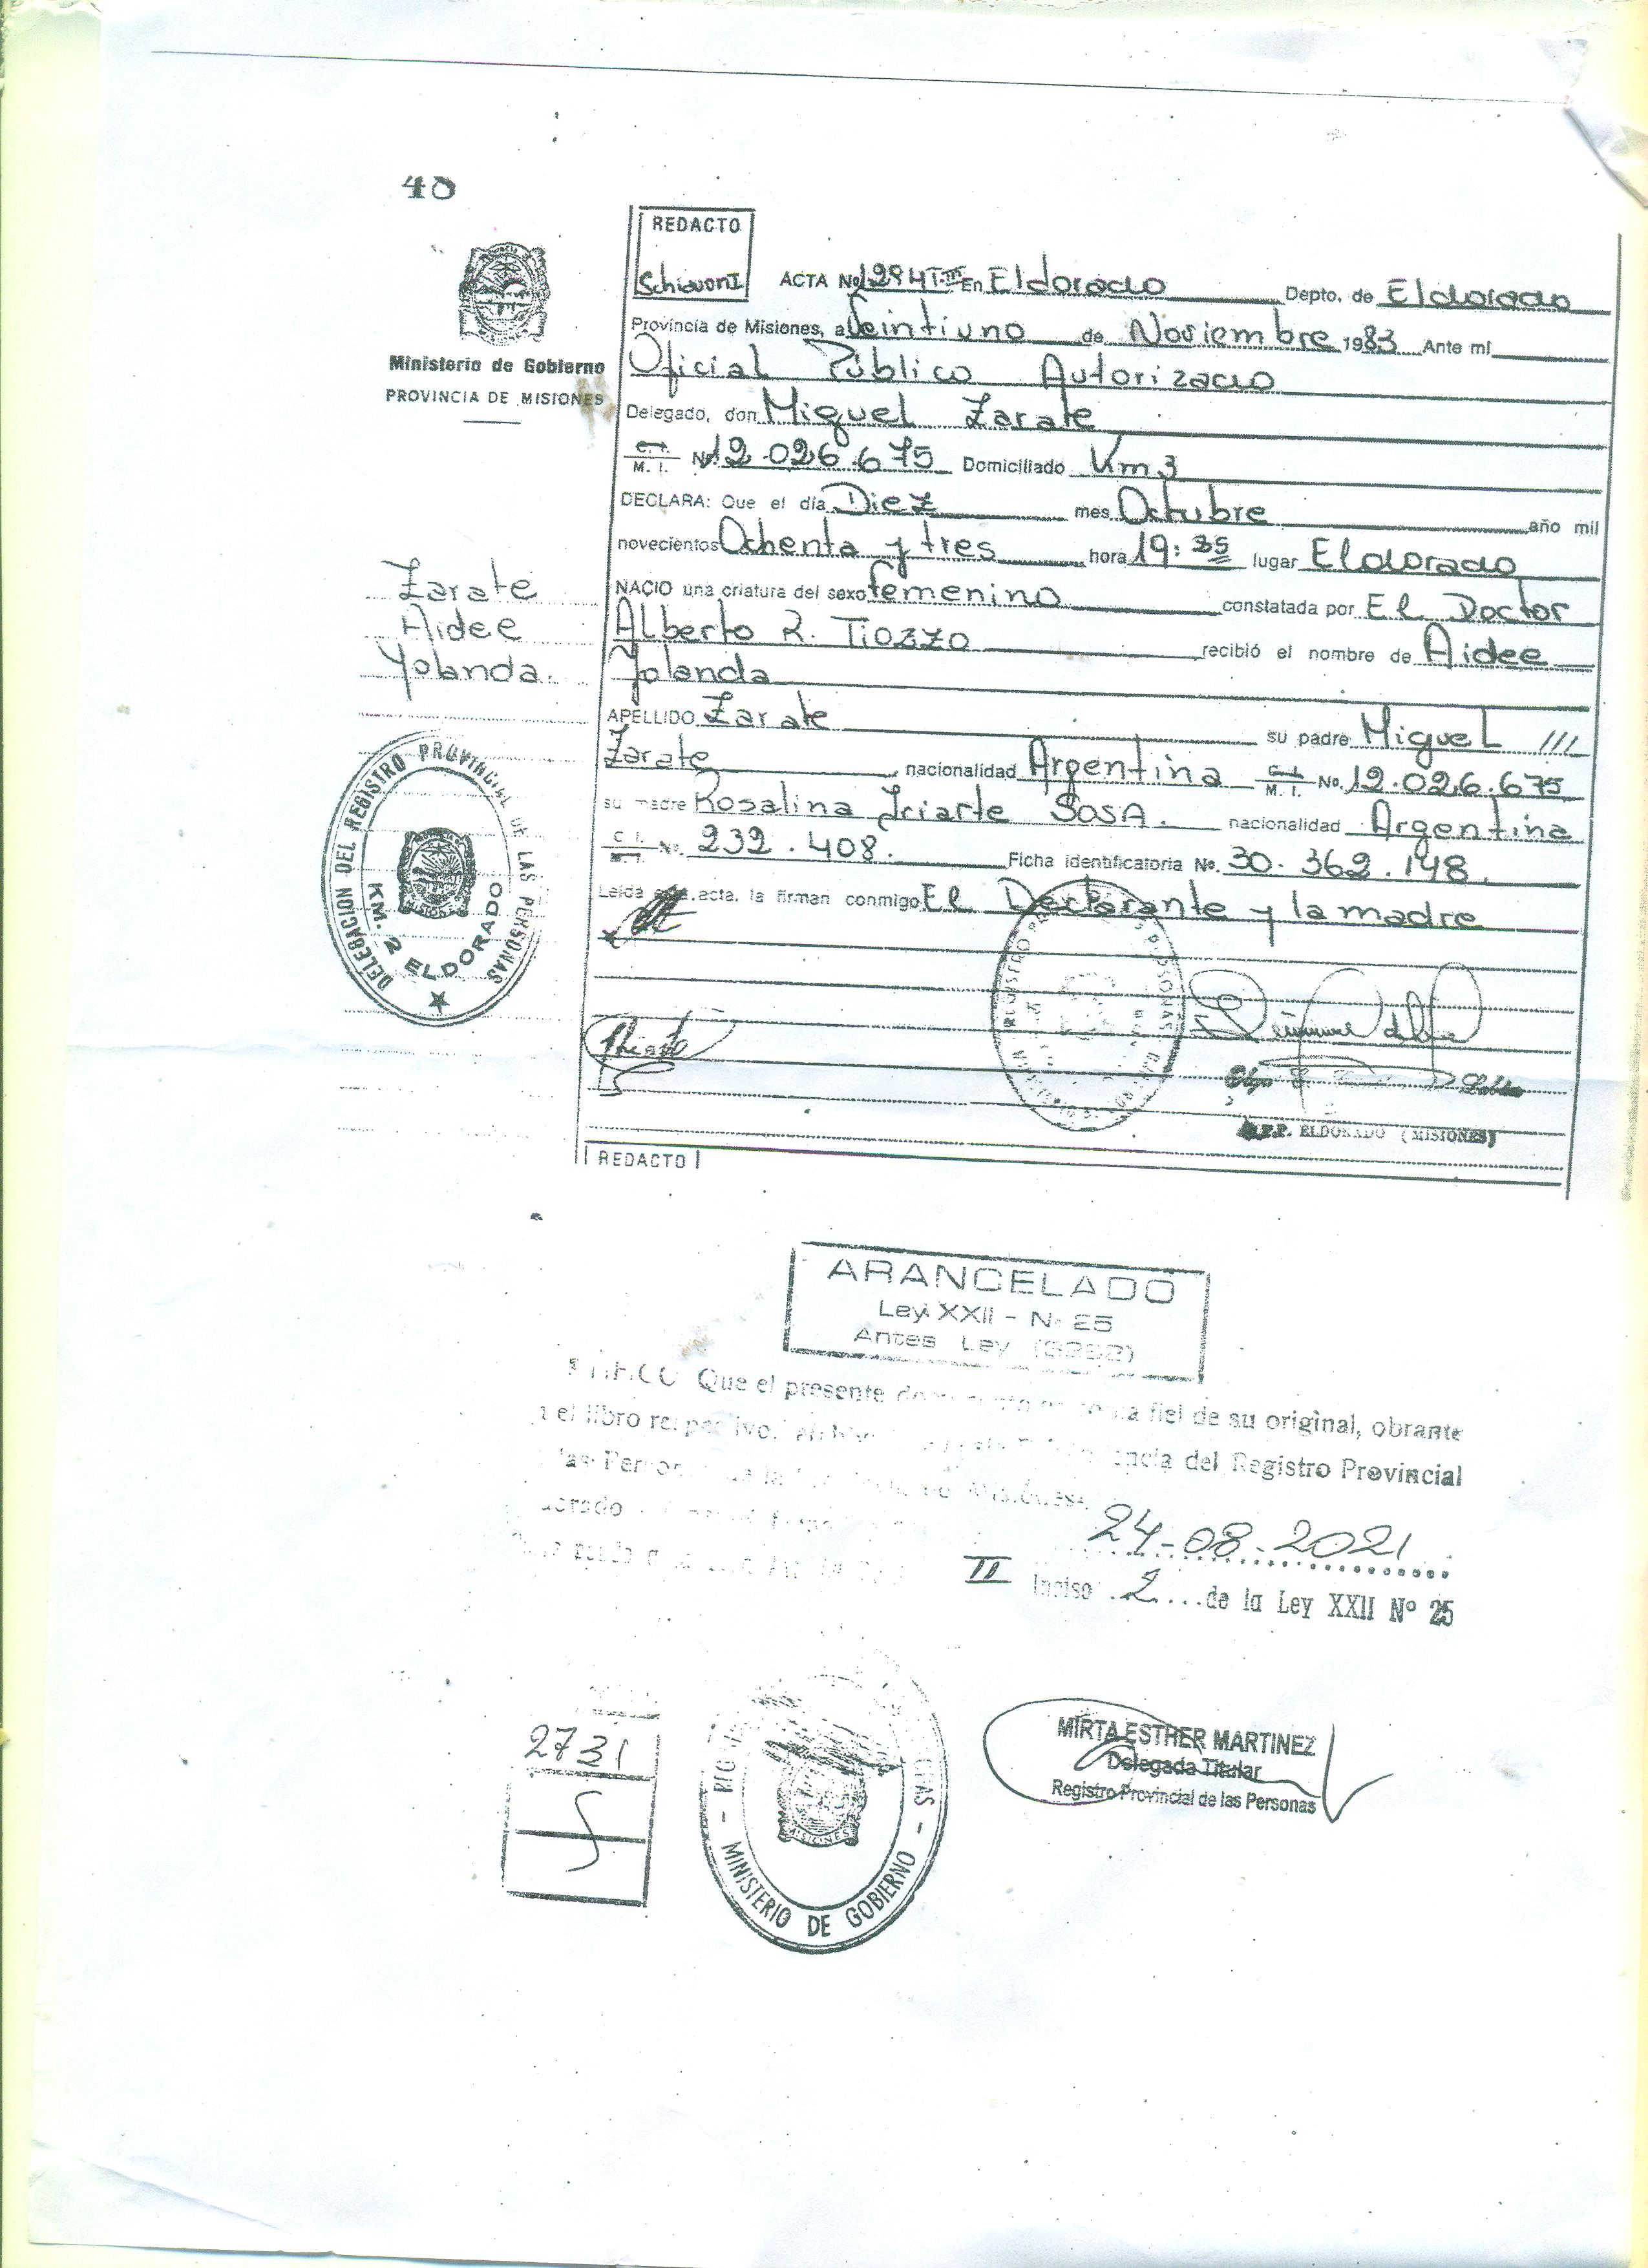 40
REDACTO
Schiavoni
ACTA Nº 1284 T. III En Eldorado Depto. de Eldorado
Provincia de Misiones, a Veintiuno de Noviembre 1983 Ante mi
Ministerio de Gobierno
PROVINCIA DE MISIONES
Oficial Público Autorizado
Delegado, don Miguel Zarate
C. I. M. I. Nº 12.026.675 Domiciliado Km 3
DECLARA: Que el día Diez mes Octubre año mil
novecientos Ochenta y tres hora 19:35 lugar Eldorado
NACIO una criatura del sexo femenino constatada por El Doctor
Alberto R. Tiozzo recibió el nombre de Aidee
Yolanda
Zarate
Aidee
Yolanda.
APELLIDO Zarate su padre Miguel ///
Zarate nacionalidad Argentina C. I. M. I. No. 12.026.675
su madre Rosalina Iriarte SOSA. nacionalidad Argentina
C. I. M. I. No. 232.408. Ficha identificatoria No. 30.362.148.
Leida acta, la firman conmigo El Declarante y la madre
DELEGACION DEL REGISTRO PROVINCIAL DE LAS PERSONAS
KM. 2 ELDORADO
ELDORADO (MISIONES)
REDACTO
ARANCELADO
Ley XXII - Nº 25
Antes Ley
Que el presente fiel de su original, obrante
el libro del Registro Provincial
24-08-2021
II Inciso 2 de la Ley XXII Nº 25
2731
MISIONES
MINISTERIO DE GOBIERNO
MIRTA ESTHER MARTINEZ
Delegada Titular
Registro Provincial de las Personas